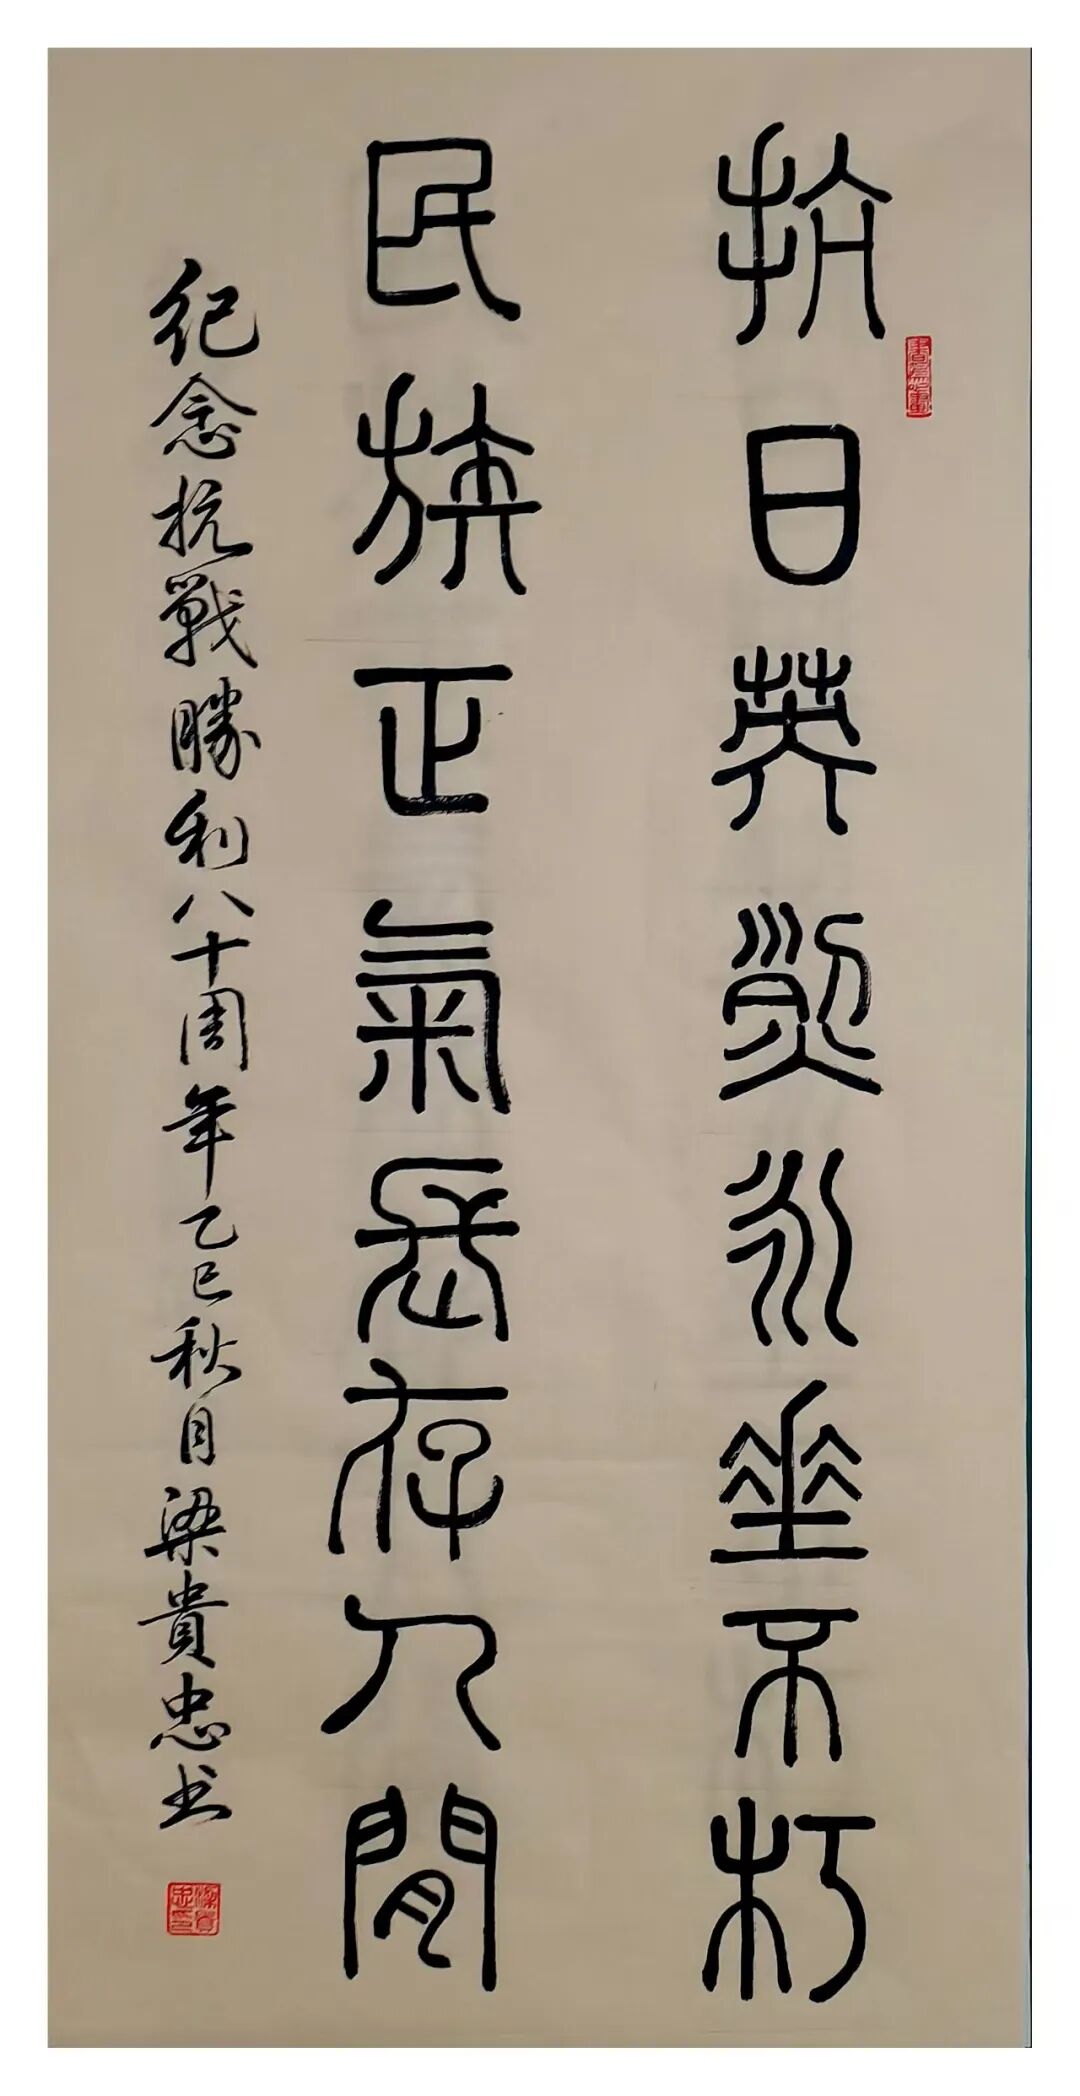 抗日英烈永垂不朽
民族正氣長存人間
纪念抗戰勝利八十周年乙巳秋月梁貴忠书
梁貴忠印